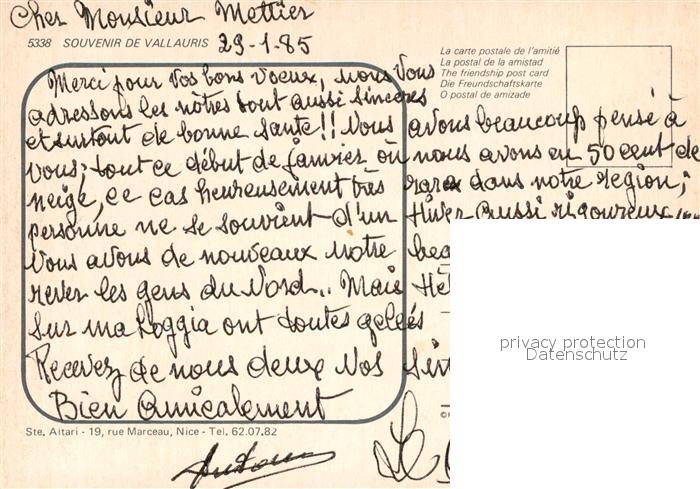 Cher Monsieur Mettier
5338 SOUVENIR DE VALLAURIS 29-1-85
La carte postale de l'amitié
La postal de la amistad
The friendship post card
Die Freundschaftskarte
O postal de amizade
Merci pour Vos bons voeux, nous Vous
adressons les nôtres tout aussi sincères
et surtout de bonne santé!! Nous avons beaucoup pensé à
vous; tout ce début de janvier où nous avons eu 50 cent de
neige, ce cas heureusement très rare dans notre région,
personne ne se souvient d'un Hiver aussi rigoureux
Nous avons de nouveaux notre
rever les gens du Nord.. Mais
Sur ma Loggia ont toutes gelées
Recevez de nous deux Nos
Bien Amicalement
Ste. Aitari - 19, rue Marceau, Nice - Tel. 62.07.82
privacy protection
Datenschutz